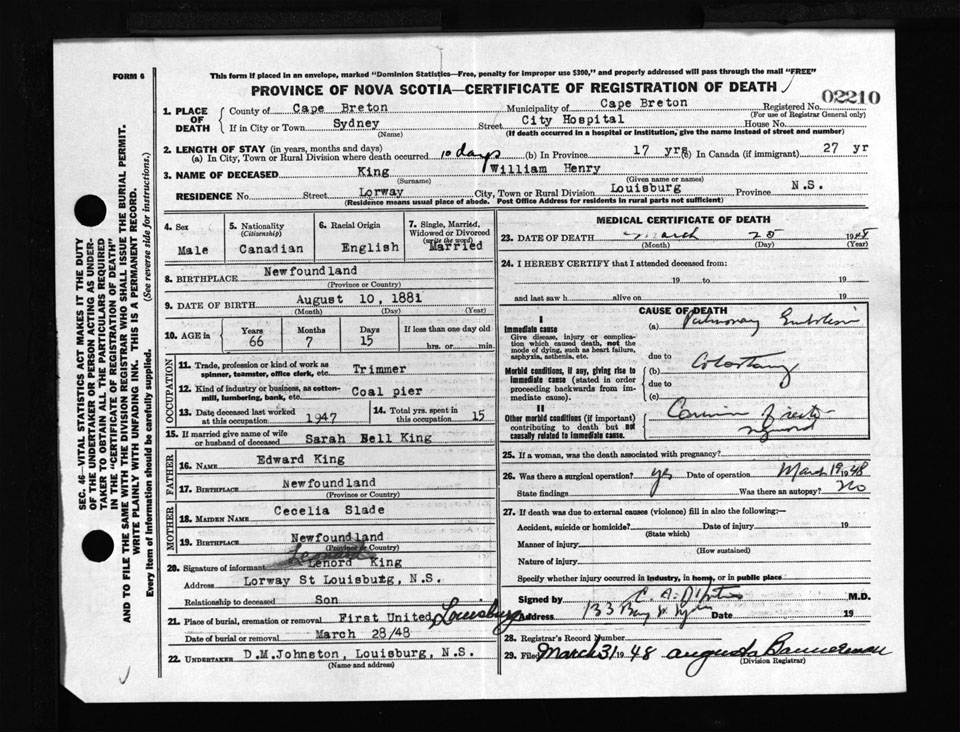 FORM 6
This form if placed in an envelope, marked "Dominion Statistics—Free, penalty for improper use $300," and properly addressed will pass through the mail "FREE"
PROVINCE OF NOVA SCOTIA—CERTIFICATE OF REGISTRATION OF DEATH
1. PLACE OF DEATH
County of Cape Breton Municipality of Cape Breton Registered No. 02210
(For use of Registrar General only)
If in City or Town Sydney Street City Hospital House No.
(Name) (If death occurred in a hospital or institution, give the name instead of street and number)
2. LENGTH OF STAY (in years, months and days)
(a) In City, Town or Rural Division where death occurred 10 days (b) In Province 17 yrs (c) In Canada (if immigrant) 27 yr
3. NAME OF DECEASED King William Henry
(Surname) (Given name or names)
RESIDENCE No. Street Lorway City, Town or Rural Division Louisburg Province N.S.
(Residence means usual place of abode. Post Office Address for residents in rural parts not sufficient)
4. Sex
Male
5. Nationality
(Citizenship)
Canadian
6. Racial Origin
English
7. Single, Married, Widowed or Divorced
(write the word)
Married
8. BIRTHPLACE Newfoundland
(Province or Country)
9. DATE OF BIRTH August 10, 1881
(Month) (Day) (Year)
10. AGE in
Years Months Days If less than one day old
66 7 15 hrs. or min.
OCCUPATION
11. Trade, profession or kind of work as spinner, teamster, office clerk, etc. Trimmer
12. Kind of industry or business, as cotton-mill, lumbering, bank, etc. Coal pier
13. Date deceased last worked at this occupation 1947
14. Total yrs. spent in this occupation 15
15. If married give name of wife or husband of deceased Sarah Bell King
FATHER
16. NAME Edward King
17. BIRTHPLACE Newfoundland
(Province or Country)
MOTHER
18. MAIDEN NAME Cecelia Slade
19. BIRTHPLACE Newfoundland
(Province or Country)
Leonard
20. Signature of informant Lenord King
Address Lorway St Louisburg, N.S.
Relationship to deceased Son
21. Place of burial, cremation or removal First United Louisburg
Date of burial or removal March 28/48
22. UNDERTAKER D.M.Johnston, Louisburg, N.S.
(Name and address)
MEDICAL CERTIFICATE OF DEATH
23. DATE OF DEATH March 25 1948
(Month) (Day) (Year)
24. I HEREBY CERTIFY that I attended deceased from:
19 to 19
and last saw h alive on 19
CAUSE OF DEATH
I
Immediate cause (a) Pulmonary Embolism
Give disease, injury or complication which caused death, not the mode of dying, such as heart failure, asphyxia, asthenia, etc.
due to
Morbid conditions, if any, giving rise to immediate cause (stated in order proceeding backwards from immediate cause).
(b) Colostomy
due to
(c)
II
Other morbid conditions (if important) contributing to death but not causally related to immediate cause.
25. If a woman, was the death associated with pregnancy?
26. Was there a surgical operation? yes Date of operation March 19 1948
State findings Was there an autopsy? No
27. If death was due to external causes (violence) fill in also the following:—
Accident, suicide or homicide? Date of injury 19
(State which)
Manner of injury
(How sustained)
Nature of injury
Specify whether injury occurred in industry, in home, or in public place
Signed by C. A. M.D.
Address 133 Date 19
28. Registrar's Record Number
29. Filed March 31 1948 Augusta Bannerman
(Division Registrar)
SEC. 46—VITAL STATISTICS ACT MAKES IT THE DUTY
OF THE UNDERTAKER OR PERSON ACTING AS UNDER-
TAKER TO OBTAIN ALL THE PARTICULARS REQUIRED
IN THE "CERTIFICATE OF REGISTRATION OF DEATH"
AND TO FILE THE SAME WITH THE DIVISION REGISTRAR WHO SHALL ISSUE THE BURIAL PERMIT.
WRITE PLAINLY WITH UNFADING INK. THIS IS A PERMANENT RECORD.
Every item of information should be carefully supplied. (See reverse side for instructions.)